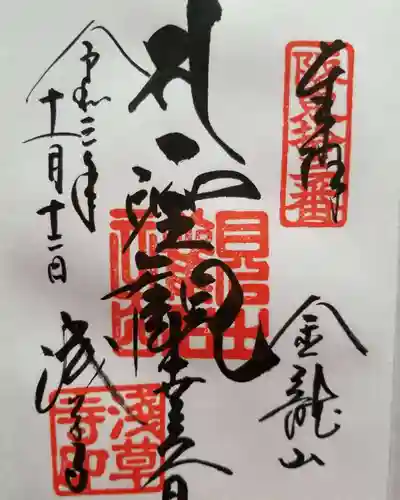 奉拝
坂東拾三番
金龍山
聖観世音
淺草寺
淺草寺印
令和三年
十一月十二日